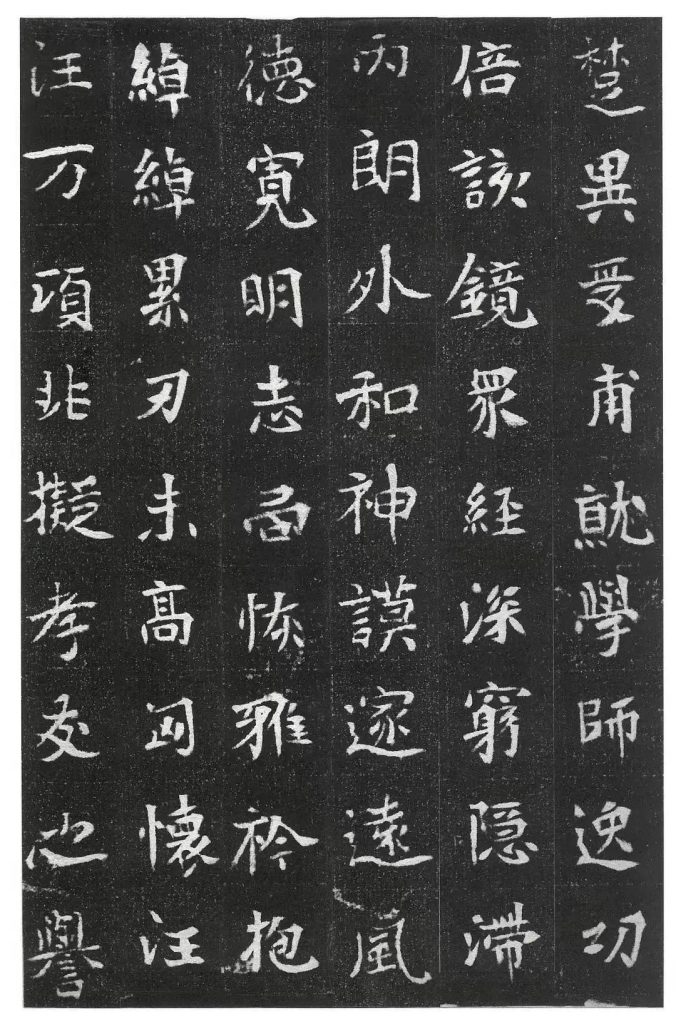 楚異爰甫就學師逸功
倍該鏡衆經深窮隱滯
內朗外和神謨邃遠風
德寬明志局恢雅衿抱
綽綽累刃未高匈懷汪
汪万頃非擬孝友之譽